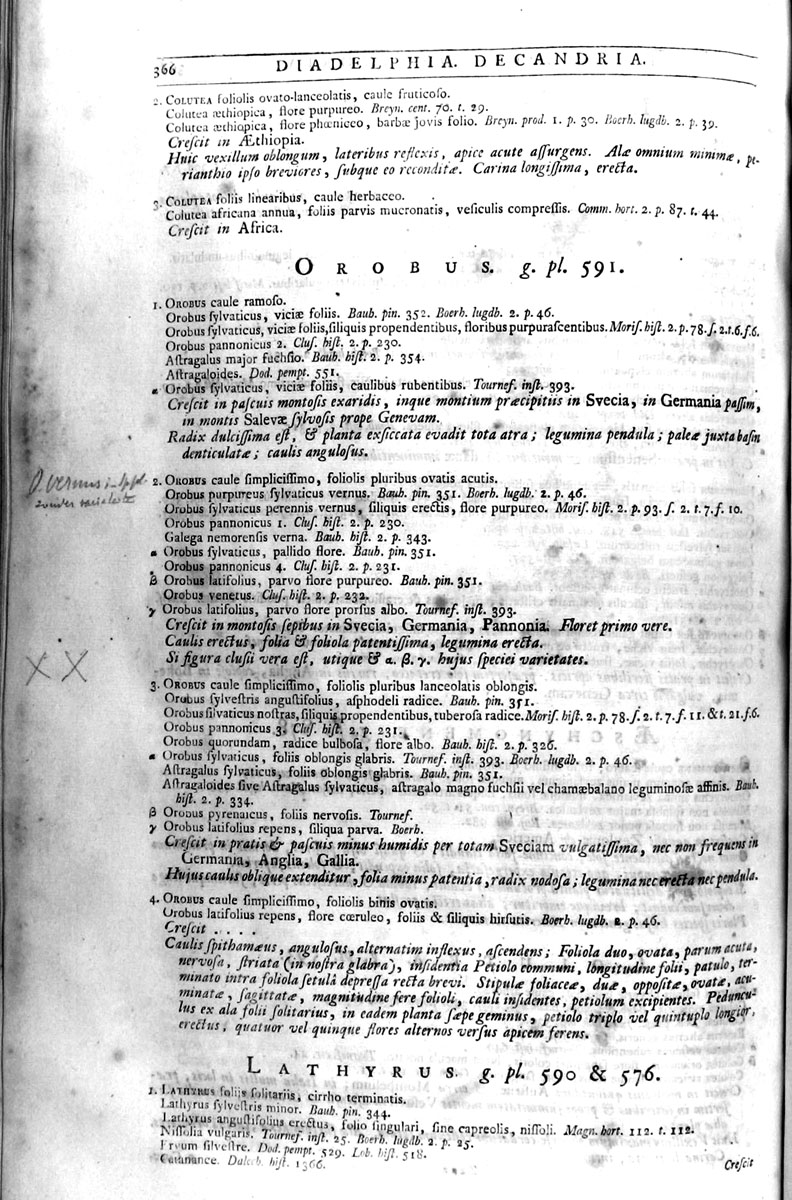 366 DIADELPHIA. DECANDRIA.
2. COLUTEA foliolis ovato-lanceolatis, caule fruticoſo.
Colutea æthiopica, flore purpureo. Breyn. cent. 70. t. 29.
Colutea æthiopica, flore phœniceo, barbæ jovis folio. Breyn. prod. 1. p. 30. Boerh. lugdb. 2. p. 39.
Creſcit in Æthiopia.
Huic vexillum oblongum, lateribus reflexis, apice acute aſſurgens. Alæ omnium minimæ, pe-
rianthio ipſo breviores, ſubque eo reconditæ. Carina longiſſima, erecta.
3. COLUTEA foliis linearibus, caule herbaceo.
Colutea africana annua, foliis parvis mucronatis, veſiculis compreſſis. Comm. hort. 2. p. 87. t. 44.
Creſcit in Africa.
OROBUS. g. pl. 591.
1. OROBUS caule ramoſo.
Orobus ſylvaticus, viciæ foliis. Bauh. pin. 352. Boerh. lugdb. 2. p. 46.
Orobus ſylvaticus, viciæ foliis, ſiliquis propendentibus, floribus purpuraſcentibus. Moriſ. hiſt. 2. p. 78. ſ. 2. t. 6. f. 6.
Orobus pannonicus 2. Cluſ. hiſt. 2. p. 230.
Aſtragalus major fuchſio. Bauh. hiſt. 2. p. 354.
Aſtragaloides. Dod. pempt. 551.
α Orobus ſylvaticus, viciæ foliis, caulibus rubentibus. Tournef. inſt. 393.
Creſcit in paſcuis montoſis exaridis, inque montium præcipitiis in Svecia, in Germania paſſim,
in montis Salevæ ſylvoſis prope Genevam.
Radix dulciſſima eſt, & planta exſiccata evadit tota atra; legumina pendula; paleæ juxta baſin
denticulatæ; caulis anguloſus.
O. vernus
2. OROBUS caule ſimpliciſſimo, foliolis pluribus ovatis acutis.
Orobus purpureus ſylvaticus vernus. Bauh. pin. 351. Boerh. lugdb. 2. p. 46.
Orobus ſylvaticus perennis vernus, ſiliquis erectis, flore purpureo. Moriſ. hiſt. 2. p. 93. ſ. 2. t. 7. f. 10.
Orobus pannonicus 1. Cluſ. hiſt. 2. p. 230.
Galega nemorenſis verna. Bauh. hiſt. 2. p. 343.
α Orobus ſylvaticus, pallido flore. Bauh. pin. 351.
Orobus pannonicus 4. Cluſ. hiſt. 2. p. 231.
β Orobus latifolius, parvo flore purpureo. Bauh. pin. 351.
Orobus venetus. Cluſ. hiſt. 2. p. 232.
γ Orobus latifolius, parvo flore prorſus albo. Tournef. inſt. 393.
Creſcit in montoſis ſepibus in Svecia, Germania, Pannonia. Floret primo vere.
Caulis erectus, folia & foliola patentiſſima, legumina erecta.
Si figura cluſii vera eſt, utique & α. β. γ. hujus ſpeciei varietates.
X X
3. OROBUS caule ſimpliciſſimo, foliolis pluribus lanceolatis oblongis.
Orobus ſylveſtris anguſtifolius, aſphodeli radice. Bauh. pin. 351.
Orobus ſilvaticus noſtras, ſiliquis propendentibus, tuberoſa radice. Moriſ. hiſt. 2. p. 78. ſ. 2. t. 7. f. 11. & t. 21. f. 6.
Orobus pannonicus 3. Cluſ. hiſt. 2. p. 231.
Orobus quorundam, radice bulboſa, flore albo. Bauh. hiſt. 2. p. 326.
α Orobus ſylvaticus, foliis oblongis glabris. Tournef. inſt. 393. Boerh. lugdb. 2. p. 46.
Aſtragalus ſylvaticus, foliis oblongis glabris. Bauh. pin. 351.
Aſtragaloides ſive Aſtragalus ſylvaticus, aſtragalo magno fuchſii vel chamæbalano leguminoſæ affinis. Bauh.
hiſt. 2. p. 334.
β Orobus pyrenaicus, foliis nervoſis. Tournef.
γ Orobus latifolius repens, ſiliqua parva. Boerh.
Creſcit in pratis & paſcuis minus humidis per totam Sveciam vulgatiſſima, nec non frequens in
Germania, Anglia, Gallia.
Hujus caulis oblique extenditur, folia minus patentia, radix nodoſa; legumina nec erecta nec pendula.
4. OROBUS caule ſimpliciſſimo, foliolis binis ovatis.
Orobus latifolius repens, flore cœruleo, foliis & ſiliquis hirſutis. Boerh. lugdb. 2. p. 46.
Creſcit . . . . .
Caulis ſpithamæus, anguloſus, alternatim inflexus, aſcendens; Foliola duo, ovata, parum acuta,
nervoſa, ſtriata (in noſtra glabra), inſidentia Petiolo communi, longitudine folii, patulo, ter-
minato intra foliola ſetula depreſſa recta brevi. Stipulæ foliaceæ, duæ, oppoſitæ, ovatæ, acu-
minatæ, ſagittatæ, magnitudine fere folioli, cauli inſidentes, petiolum excipientes. Peduncu-
lus ex ala folii ſolitarius, in eadem planta ſæpe geminus, petiolo triplo vel quintuplo longior,
erectus, quatuor vel quinque flores alternos verſus apicem ferens.
LATHYRUS. g. pl. 590 & 576.
1. LATHYRUS foliis ſolitariis, cirrho terminatis.
Lathyrus ſylveſtris minor. Bauh. pin. 344.
Lathyrus anguſtifolius erectus, folio ſingulari, ſine capreolis, niſſoli. Magn. hort. 112. t. 112.
Niſſolia vulgaris. Tournef. inſt. 25. Boerh. lugdb. 2. p. 25.
Ervum ſilveſtre. Dod. pempt. 529. Lob. hiſt. 518.
Catanance. Dalech. hiſt. 1366.
Creſcit